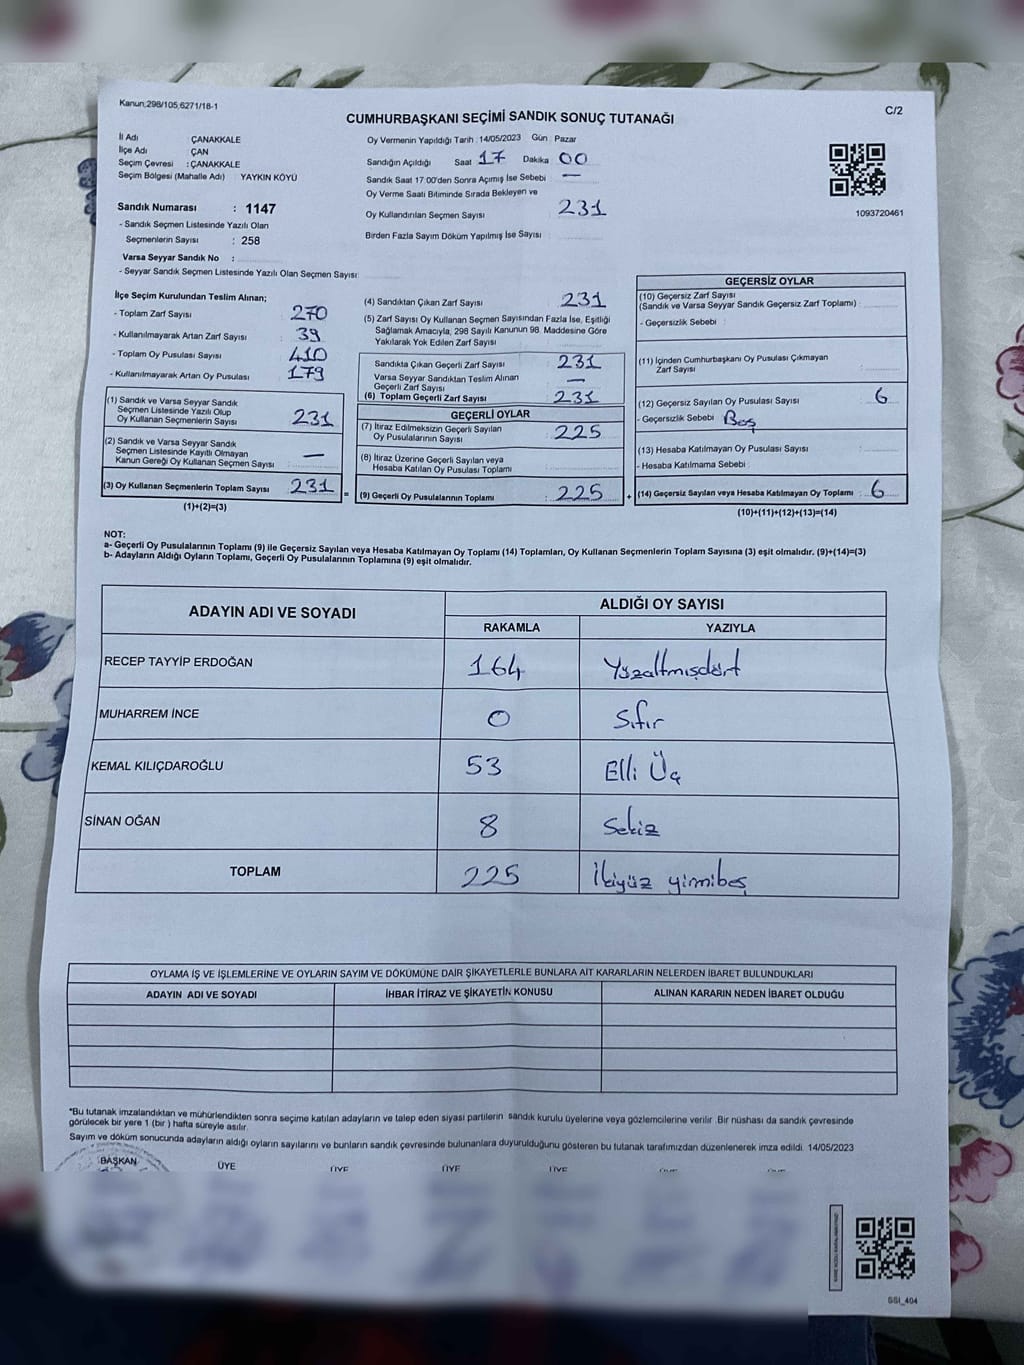 Kanun;298/105;6271/18-1
C/2
CUMHURBAŞKANI SEÇİMİ SANDIK SONUÇ TUTANAĞI
İl Adı ÇANAKKALE
İlçe Adı ÇAN
Seçim Çevresi : ÇANAKKALE
Seçim Bölgesi (Mahalle Adı) YAYKIN KÖYÜ
Sandık Numarası : 1147
- Sandık Seçmen Listesinde Yazılı Olan
Seçmenlerin Sayısı : 258
Varsa Seyyar Sandık No :
- Seyyar Sandık Seçmen Listesinde Yazılı Olan Seçmen Sayısı:
Oy Vermenin Yapıldığı Tarih : 14/05/2023 Gün : Pazar
Sandığın Açıldığı Saat 17 Dakika 00
Sandık Saat 17:00'den Sonra Açımış İse Sebebi —
Oy Verme Saati Bitiminde Sırada Bekleyen ve
Oy Kullandırılan Seçmen Sayısı 231
Birden Fazla Sayım Döküm Yapılmış İse Sayısı
1093720461
İlçe Seçim Kurulundan Teslim Alınan;
- Toplam Zarf Sayısı : 270
- Kullanılmayarak Artan Zarf Sayısı : 39
- Toplam Oy Pusulası Sayısı : 410
- Kullanılmayarak Artan Oy Pusulası : 179
(1) Sandık ve Varsa Seyyar Sandık
Seçmen Listesinde Yazılı Olup
Oy Kullanan Seçmenlerin Sayısı : 231
(2) Sandık ve Varsa Seyyar Sandık
Seçmen Listesinde Kayıtlı Olmayan
Kanun Gereği Oy Kullanan Seçmen Sayısı : —
(3) Oy Kullanan Seçmenlerin Toplam Sayısı : 231 =
(1)+(2)=(3)
(4) Sandıktan Çıkan Zarf Sayısı : 231
(5) Zarf Sayısı Oy Kullanan Seçmen Sayısından Fazla İse, Eşitliği
Sağlamak Amacıyla, 298 Sayılı Kanunun 98. Maddesine Göre
Yakılarak Yok Edilen Zarf Sayısı
Sandıkta Çıkan Geçerli Zarf Sayısı : 231
Varsa Seyyar Sandıktan Teslim Alınan
Geçerli Zarf Sayısı —
(6) Toplam Geçerli Zarf Sayısı : 231
GEÇERLİ OYLAR
(7) İtiraz Edilmeksizin Geçerli Sayılan
Oy Pusulalarının Sayısı : 225
(8) İtiraz Üzerine Geçerli Sayılan veya
Hesaba Katılan Oy Pusulası Toplamı
(9) Geçerli Oy Pusulalarının Toplamı : 225 +
GEÇERSİZ OYLAR
(10) Geçersiz Zarf Sayısı
(Sandık ve Varsa Seyyar Sandık Geçersiz Zarf Toplamı) :
- Geçersizlik Sebebi :
(11) İçinden Cumhurbaşkanı Oy Pusulası Çıkmayan
Zarf Sayısı :
(12) Geçersiz Sayılan Oy Pusulası Sayısı : 6
- Geçersizlik Sebebi : Boş
(13) Hesaba Katılmayan Oy Pusulası Sayısı :
- Hesaba Katılmama Sebebi :
(14) Geçersiz Sayılan veya Hesaba Katılmayan Oy Toplamı : 6
(10)+(11)+(12)+(13)=(14)
NOT:
a- Geçerli Oy Pusulalarının Toplamı (9) ile Geçersiz Sayılan veya Hesaba Katılmayan Oy Toplamı (14) Toplamları, Oy Kullanan Seçmenlerin Toplam Sayısına (3) eşit olmalıdır. (9)+(14)=(3)
b- Adayların Aldığı Oyların Toplamı, Geçerli Oy Pusulalarının Toplamına (9) eşit olmalıdır.
ADAYIN ADI VE SOYADI ALDIĞI OY SAYISI
RAKAMLA YAZIYLA
RECEP TAYYİP ERDOĞAN 164 Yüzaltmışdört
MUHARREM İNCE 0 Sıfır
KEMAL KILIÇDAROĞLU 53 Elli Üç
SİNAN OĞAN 8 Sekiz
TOPLAM 225 İkiyüz yirmibeş
OYLAMA İŞ VE İŞLEMLERİNE VE OYLARIN SAYIM VE DÖKÜMÜNE DAİR ŞİKAYETLERLE BUNLARA AİT KARARLARIN NELERDEN İBARET BULUNDUKLARI
ADAYIN ADI VE SOYADI İHBAR İTİRAZ VE ŞİKAYETİN KONUSU ALINAN KARARIN NEDEN İBARET OLDUĞU
*Bu tutanak imzalandıktan ve mühürlendikten sonra seçime katılan adayların ve talep eden siyasi partilerin sandık kurulu üyelerine veya gözlemcilerine verilir. Bir nüshası da sandık çevresinde
görülecek bir yere 1 (bir ) hafta süreyle asılır.
Sayım ve döküm sonucunda adayların aldığı oyların sayılarını ve bunların sandık çevresinde bulunanlara duyurulduğunu gösteren bu tutanak tarafımızdan düzenlenerek imza edildi. 14/05/2023
BAŞKAN ÜYE ÜYE ÜYE ÜYE
GSI_404